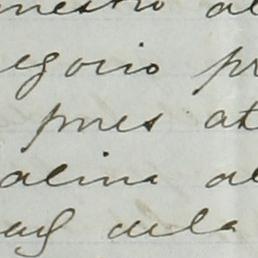 nestro al
egorio pr
pues at
alina al
dela